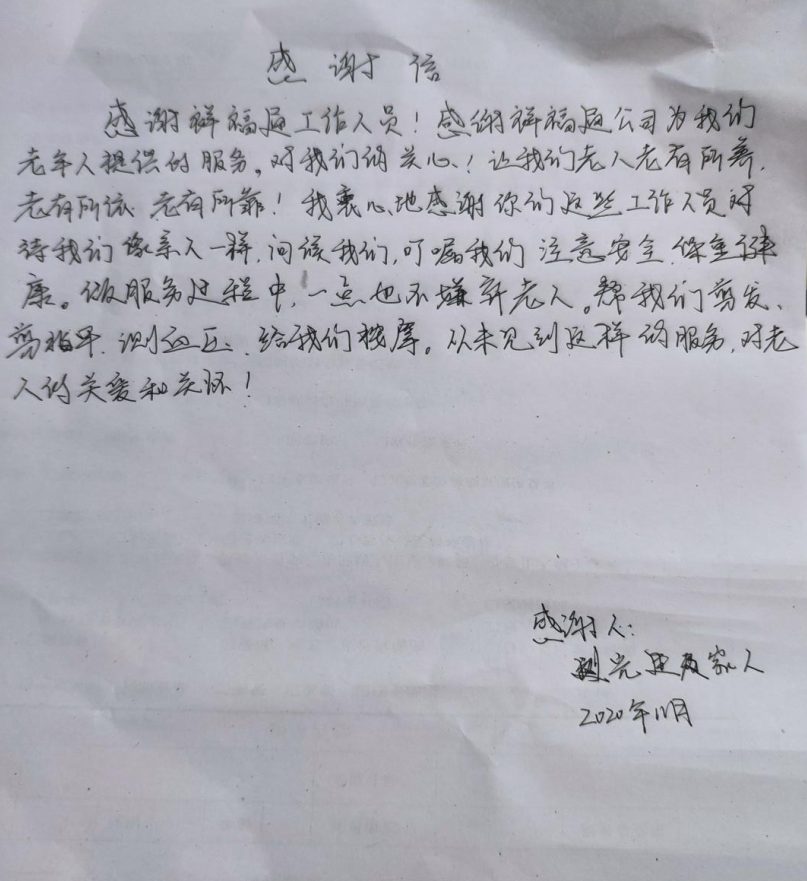 感谢信
感谢祥福通工作人员！感谢祥福通公司为我们
老年人提供的服务。对我们的关心！让我们老人老有所养，
老有所依 老有所靠！我衷心地感谢你们这些工作人员对
待我们像亲人一样，问候我们，叮嘱我们 注意安全 保重健
康。做服务过程中，一点也不嫌弃老人。帮我们剪发、
剪指甲、测血压、给我们按摩。从未见到这样的服务，对老
人的关爱和关怀！
感谢人：
家人
2020年11月